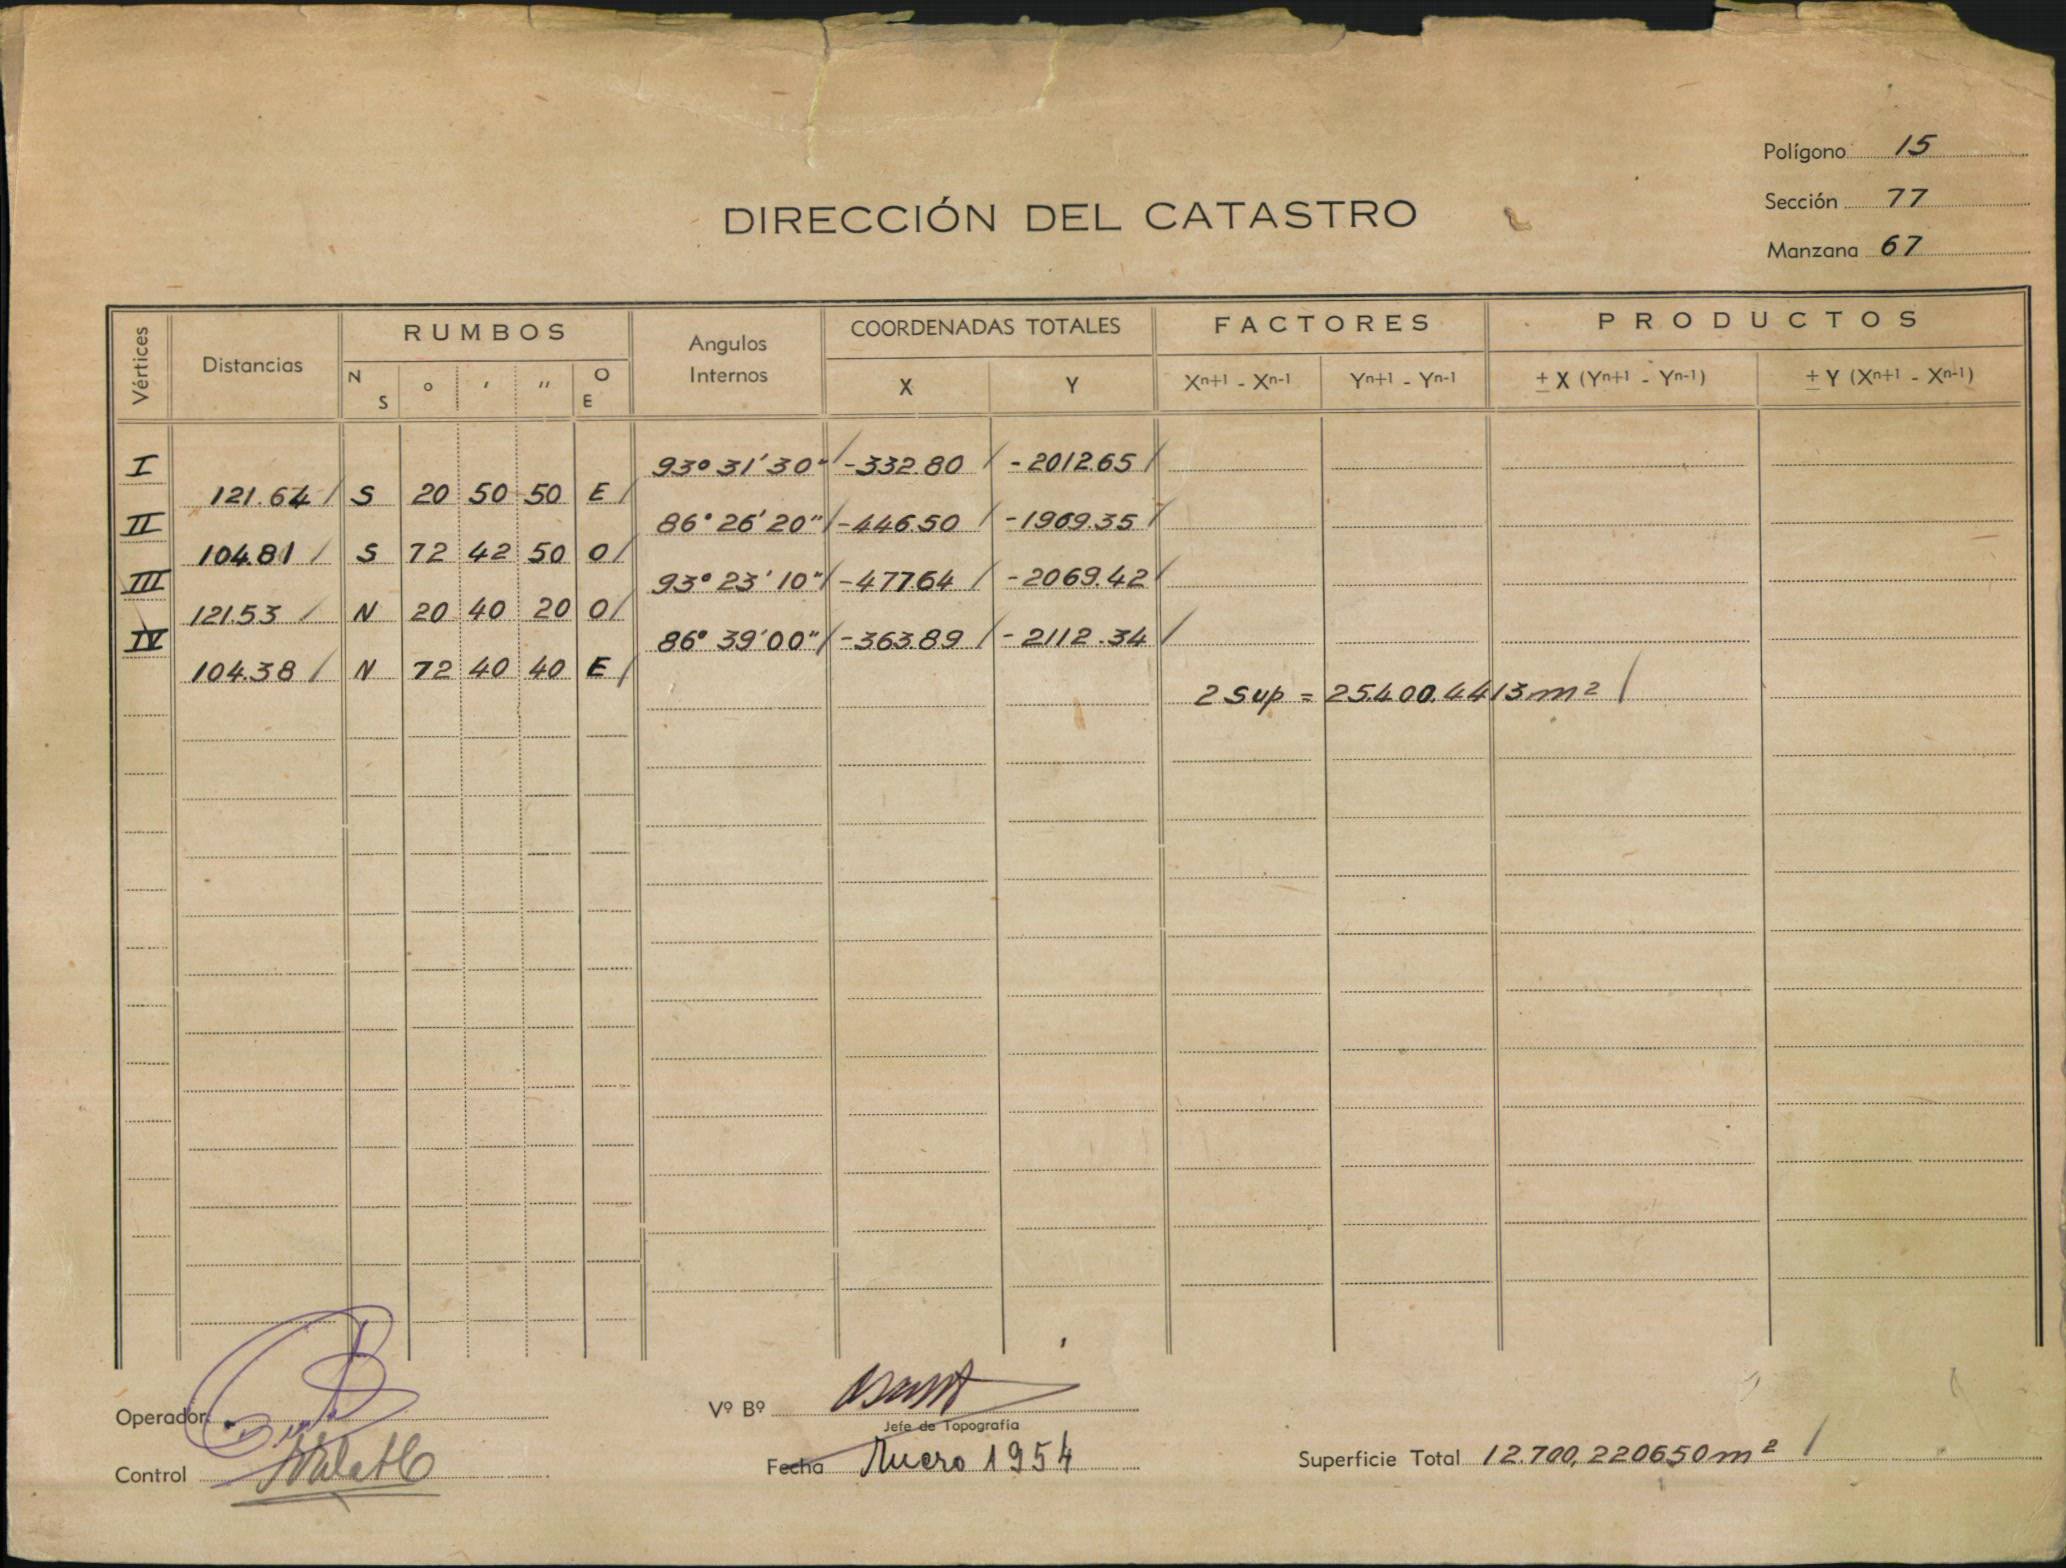 Polígono 15
Sección 77
Manzana 67
DIRECCIÓN DEL CATASTRO
Vértices Distancias RUMBOS Angulos Internos COORDENADAS TOTALES FACTORES PRODUCTOS
N S ° ' '' O E X Y Xⁿ⁺¹ - Xⁿ⁻¹ Yⁿ⁺¹ - Yⁿ⁻¹ ± X (Yⁿ⁺¹ - Yⁿ⁻¹) ± Y (Xⁿ⁺¹ - Xⁿ⁻¹)
I 93° 31' 30" / -332.80 / -2012.65 /
121.64 / S 20 50 50 E /
II 86° 26' 20" / -446.50 / -1969.35 /
104.81 / S 72 42 50 O /
III 93° 23' 10" / -477.64 / -2069.42 /
121.53 / N 20 40 20 O /
IV 86° 39' 00" / -363.89 / -2112.34 /
104.38 / N 72 40 40 E /
2 Sup = 25.400.4413 m² /
Operador
Vº Bº
Jefe de Topografía
Control
Fecha 1954
Superficie Total 12.700,220650 m² /